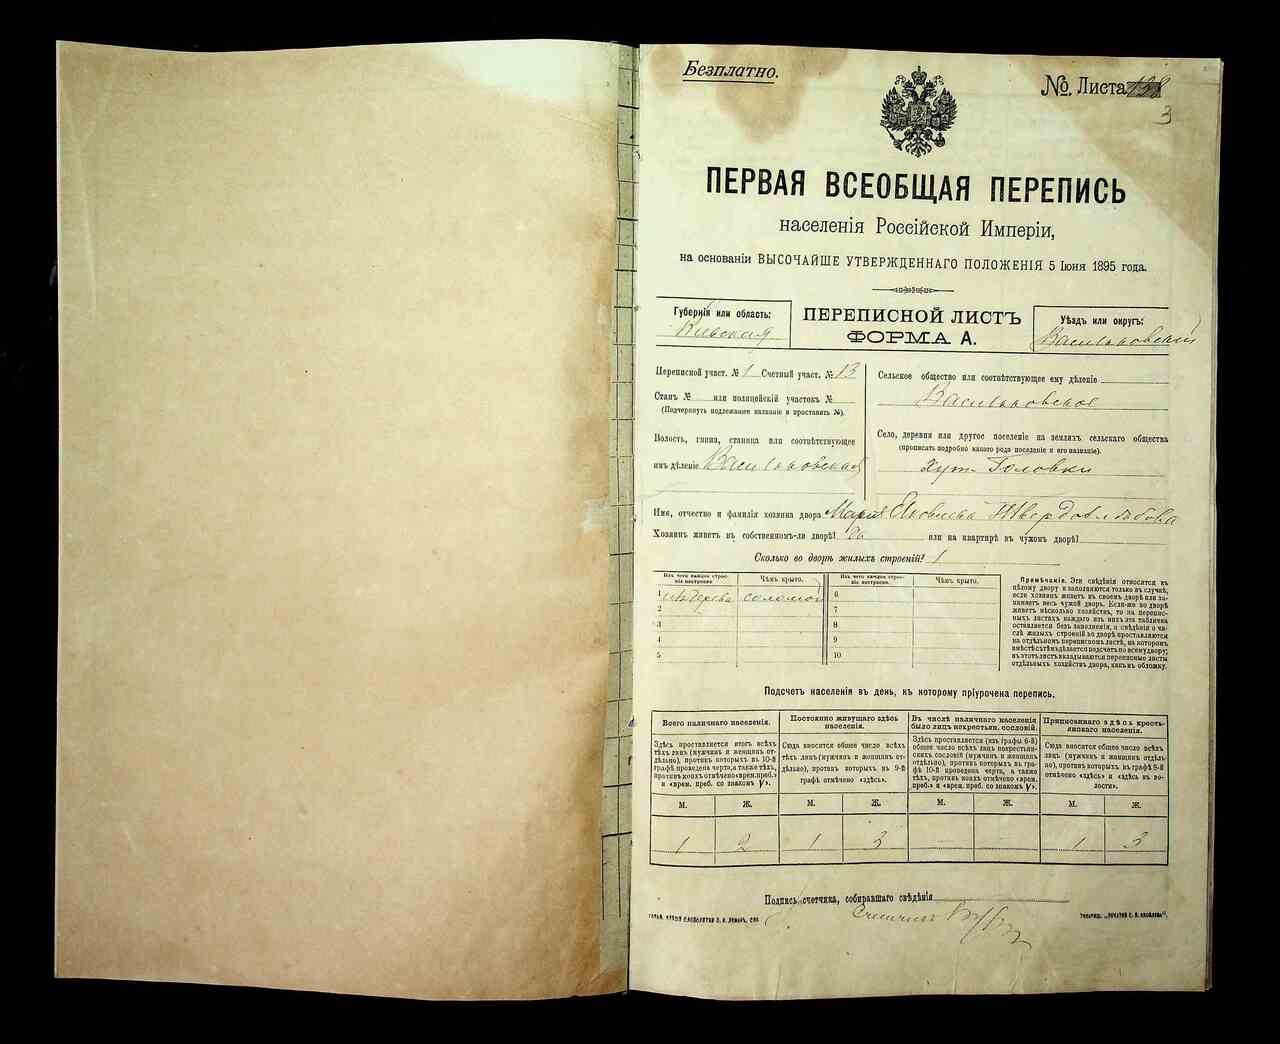 Безплатно.
№. Листа 138
3
ПЕРВАЯ ВСЕОБЩАЯ ПЕРЕПИСЬ
населенія Россійской Имперіи,
на основаніи ВЫСОЧАЙШЕ УТВЕРЖДЕННАГО ПОЛОЖЕНІЯ 5 Іюня 1895 года.
Губернія или область:
Кіевская
ПЕРЕПИСНОЙ ЛИСТЪ
ФОРМА А.
Уѣздъ или округъ:
Васильковскій
Переписной участ. № 1 Счетный участ. № 13
Станъ № или полицейскій участокъ №
(Подчеркнуть подлежащее названіе и проставить №).
Волость, гмина, станица или соотвѣтствующее
имъ дѣленіе Васильковская
Сельское общество или соотвѣтствующее ему дѣленіе
Васильковское
Село, деревня или другое поселеніе на земляхъ сельскаго общества
(прописать подробно какого рода поселеніе и его названіе).
хут. Головки
Имя, отчество и фамилія хозяина двора Мария Яковлева
Хозяинъ живетъ въ собственномъ-ли дворѣ? да или на квартирѣ въ чужомъ дворѣ?
Сколько во дворѣ жилыхъ строеній? 1
Изъ чего каждое строеніе построено. Чѣмъ крыто. Изъ чего каждое строеніе построено. Чѣмъ крыто.
1 изъ дерева соломой 6
2 7
3 8
4 9
5 10
Примѣчаніе. Эти свѣдѣнія относятся къ
цѣлому двору и заполняются только въ случаѣ,
если хозяинъ живетъ въ своемъ дворѣ или занимаетъ
весь чужой дворъ. Если-же во дворѣ
живетъ нѣсколько хозяйствъ, то на переписныхъ
листахъ каждаго изъ нихъ эта табличка
оставляется безъ заполненія, а свѣдѣнія о числѣ
жилыхъ строеній во дворѣ проставляются
на отдѣльномъ переписномъ листѣ, на которомъ
вмѣстѣ съ тѣмъ дѣлается подсчетъ по всему двору;
въ этотъ листъ вкладываются переписные листы
отдѣльныхъ хозяйствъ двора, какъ въ обложку.
Подсчетъ населенія въ день, къ которому пріурочена перепись.
Всего наличнаго населенія.
Здѣсь проставляется итогъ всѣхъ
тѣхъ лицъ (мужчинъ и женщинъ отдѣльно),
противъ которыхъ въ 10-й
графѣ проведена черта, а также тѣхъ,
противъ коихъ отмѣчено «врем. преб.»
и «врем. преб. со знакомъ V».
Постоянно живущаго здѣсь
населенія.
Сюда вносится общее число всѣхъ
тѣхъ лицъ (мужчинъ и женщинъ отдѣльно),
противъ которыхъ въ 9-й
графѣ отмѣчено «здѣсь».
Въ числѣ наличнаго населенія
было лицъ некрестьян. сословій.
Здѣсь проставляется (изъ графы 6-й)
общее число всѣхъ лицъ некрестьянскихъ
сословій (мужчинъ и женщинъ
отдѣльно), противъ которыхъ въ графѣ
10-й проведена черта, а также
тѣхъ, противъ коихъ отмѣчено «врем.
преб.» и «врем. преб. со знакомъ V».
Приписаннаго здѣсь крестьянскаго
населенія.
Сюда вносится общее число всѣхъ
лицъ (мужчинъ и женщинъ отдѣльно),
противъ которыхъ въ графѣ 8-й
отмѣчено «здѣсь» и «здѣсь въ волости».
М. Ж. М. Ж. М. Ж. М. Ж.
1 2 1 3 — — 1 3
Подпись счетчика, собиравшаго свѣдѣнія
Счетчикъ